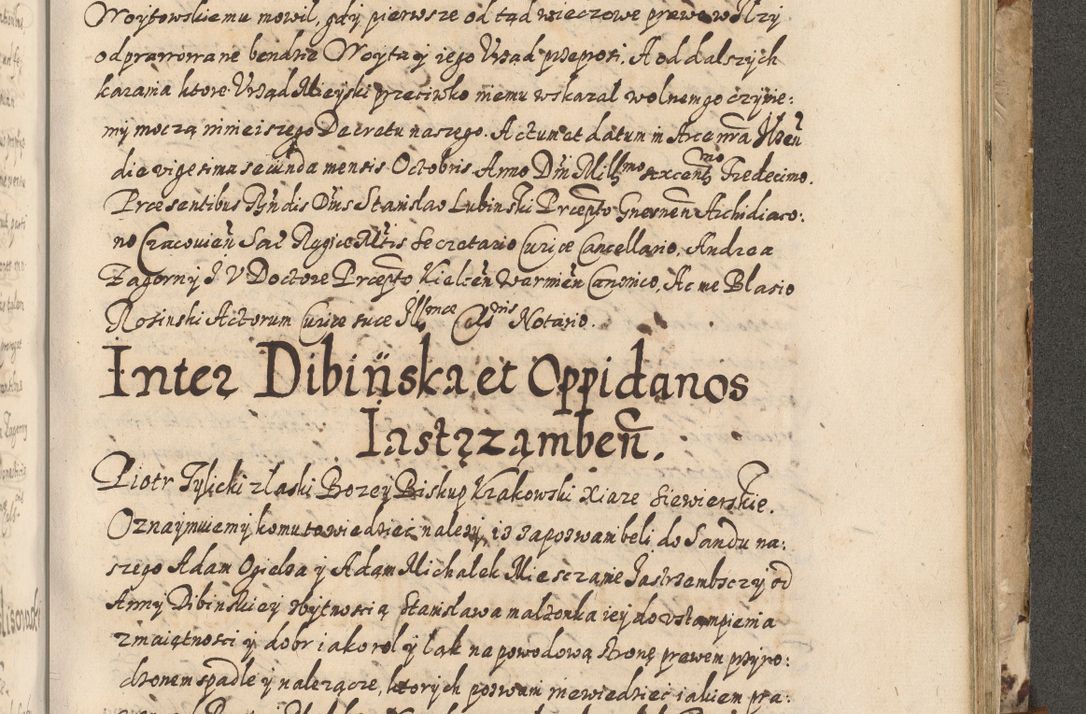 Woytowskiemu mowil, gdy pierwsze od tąd wieczowe prawo w Ilzy
odprawowane bendzie Woyta y iego Urząd przeprosi. A od dalszych
karania ktore Urząd Mieyski przeciwko niemu wskazal wolnem go czynie:
my moczą ninieiszego Decretu naszego. Actum et datum in Arce nra Ilzen
die vigesima secunda mensis Octobris Anno Dni Mill̃mo sexcentmo Tredecimo.
Præsentibus Rñdis Dñis Stanislao Lubinski Præpto Gnesnen̄ Archidiaco:
no Cracovien̄ Sac Regiæ Mtis Secretario Curiæ Cancellario, Andrea
Zagorny J V Doctore Præpto Kielcen̄ Warmien̄ Canonico, Ac me Blasio
Rosinski Actorum Curiæ suæ Illmæ Celsnis Notario.
Inter Dibińska et Oppidanos
Iastrzamben̄.
Piotr Tylicki z laski Bozey Biskup Krakowski Xiąze Siewierskie.
Oznaymuiemy komu to wiedziec nalezy, iz zapozwani beli do Sandu na:
szego Adam Ogielza y Adam Michalek Miesczanie Jastrzembsczy od
Anny Dibinskiey zbytnoscią Stanislawa malzonka iey do vstąmpienia
z maiętnosci y dobr iako rol y lak na powodową stronę prawem przyro:
dzonem spadle y nalezącze, ktorych pozwani niewiedziec iakiem pra: